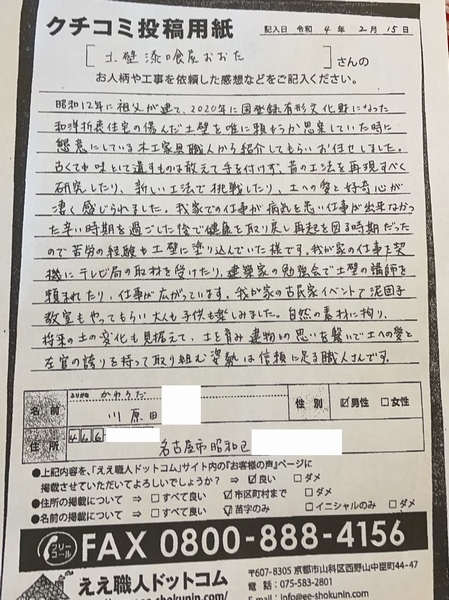 クチコミ投稿用紙
記入日 令和 4 年 2 月 15 日
[土壁漆喰屋おおた]さんの
お人柄や工事を依頼した感想などをご記入ください。
昭和12年に祖父が建て、2020年に国登録有形文化財になった
和洋折衷住宅の傷んだ土壁を誰に頼もうか思案していた時に
懇意にしている木工家具職人から紹介してもらいお任せしました。
古くても味として遺すものは敢えて手を付けず、昔の工法を再現すべく
研究したり、新しい工法で挑戦したり、土への愛と好奇心が
凄く感じられました。我家での仕事が病気を患い仕事が出来なかっ
た辛い時期を過ごした後で健康を取り戻し再起を図る時期だった
ので苦労の経験も土壁に塗り込んでいた様です。我が家の仕事を契
機にテレビ局の取材を受けたり、建築家の勉強会で土壁の講師を
頼まれたり、仕事が広がっています。我が家の古民家イベントで泥団子
教室もやってもらい大人も子供も楽しみました。自然の素材に拘り、
将来の土の変化も見据えて、土を育み建物との思いを繋いで土への愛と
左官の誇りを持って取り組む姿勢は信頼に足る職人さんです。
ふりがな かわらだ
名前 川原田 性別 ☑男性 □女性
住所 466
名古屋市昭和区
●上記内容を、「ええ職人ドットコム」サイト内の『お客様の声』ページに
掲載させていただいてよろしいでしょうか？ ⇒ ☑良い □ダメ
●住所の掲載について ⇒ □すべて良い ☑市区町村まで □ダメ
●名前の掲載について ⇒ □すべて良い ☑苗字のみ □イニシャルのみ □ダメ
フリーコール FAX 0800-888-4156
ええ職人ドットコム
〒607-8305 京都市山科区西野山中臣町44-47
電話：075-583-2801
Mail：info@ee-shokunin.com
http://ee-shokunin.com/